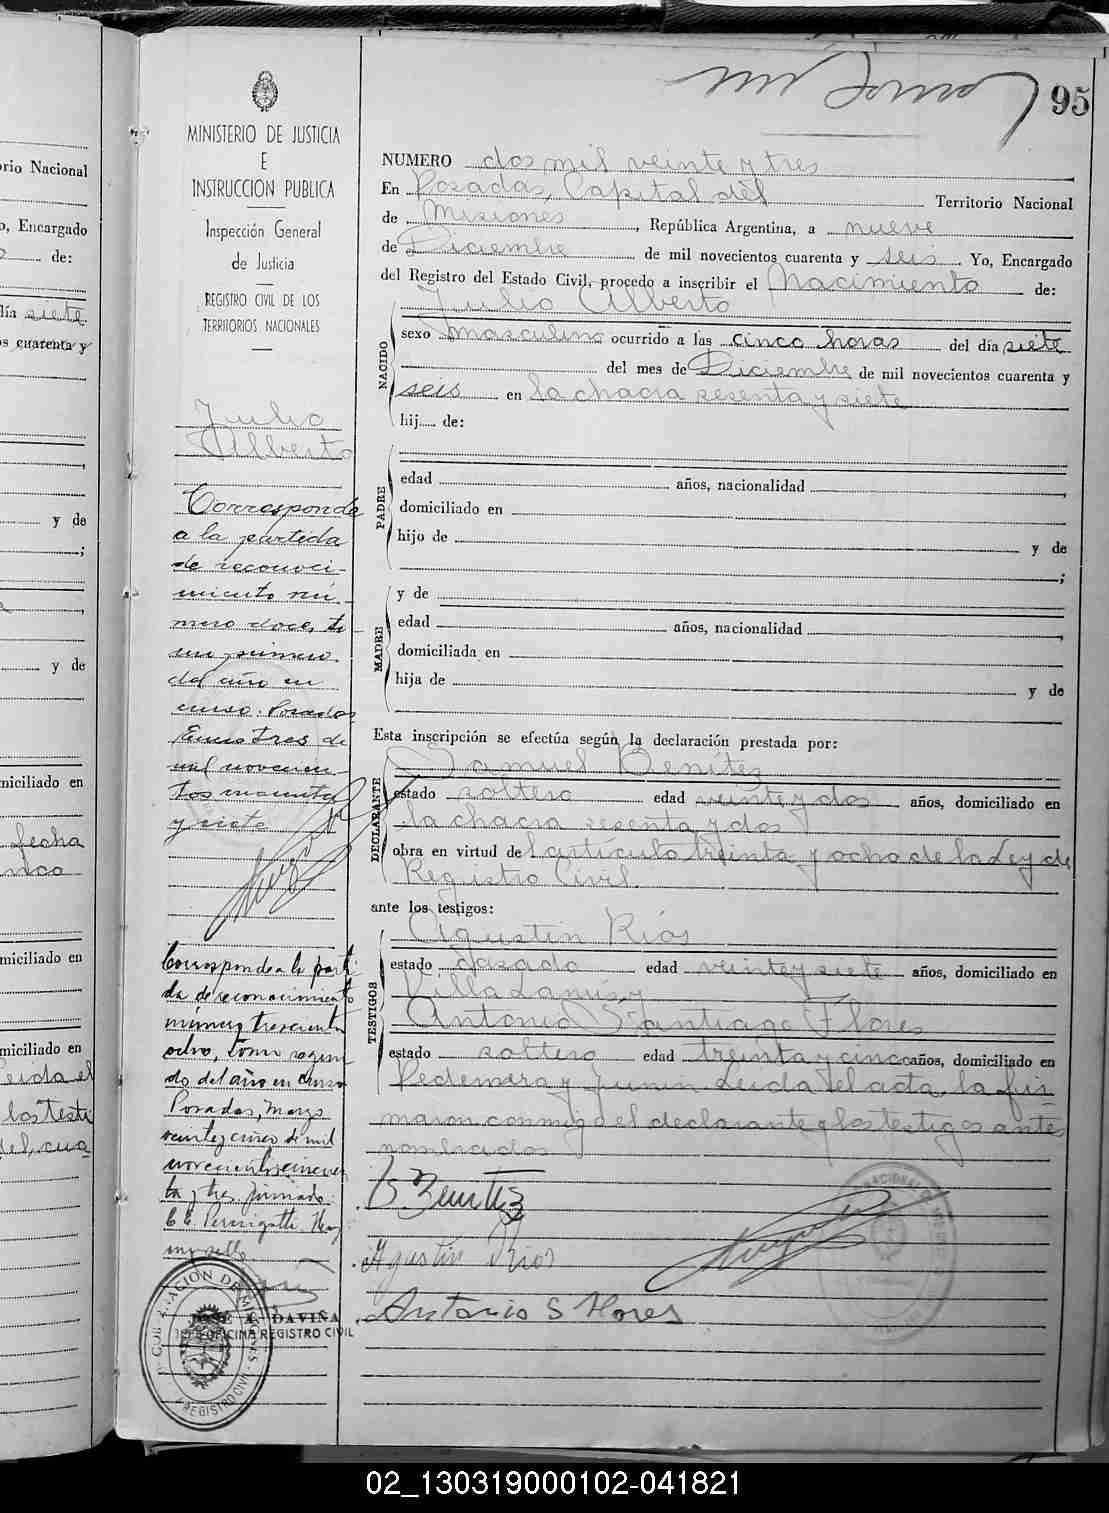 95
MINISTERIO DE JUSTICIA
E
INSTRUCCION PUBLICA
Inspección General
de Justicia
REGISTRO CIVIL DE LOS
TERRITORIOS NACIONALES
Julio
Alberto
Corresponde
a la partida
de reconoci-
miento nú-
mero doce, to-
mo primero
del año en
curso. Posadas
Enero tres de
mil novecien-
tos cuarenta
y siete
Corresponde a la parti-
da de reconocimiento
número trescientos
ocho, tomo segun-
do del año en curso
Posadas, Marzo
veinte y cinco de mil
novecientos cincuen-
ta y tres. firmado:
my sello
JOSE A. DAVIÑA
OFICINA REGISTRO CIVIL
GOBERNACIÓN DE MISIONES
REGISTRO CIVIL
NUMERO dos mil veinte y tres
En Posadas, Capital del Territorio Nacional
de Misiones, República Argentina, a nueve
de Diciembre de mil novecientos cuarenta y seis. Yo, Encargado
del Registro del Estado Civil, procedo a inscribir el Nacimiento de:
Julio Alberto
NACIDO
sexo masculino ocurrido a las cinco horas del día siete
del mes de Diciembre de mil novecientos cuarenta y
seis en la chacra sesenta y siete
hij..... de:
PADRE
edad años, nacionalidad
domiciliado en
hijo de y de
;
MADRE
y de
edad años, nacionalidad
domiciliada en
hija de y de
Esta inscripción se efectúa según la declaración prestada por:
DECLARANTE
Samuel Benítez
estado soltero edad veinte y dos años, domiciliado en
la chacra sesenta y dos
obra en virtud del artículo treinta y ocho de la Ley de
Registro Civil.
ante los testigos:
TESTIGOS
Agustin Ríos
estado casado edad veinte y siete años, domiciliado en
Villa Lanús, y
Antonio Santiago Flores
estado soltero edad treinta y cinco años, domiciliado en
Pedernera y Junin. Leida el acta, la fir-
maron conmigo el declarante y los testigos antes
nombrados
S. Benitez
Agustin Rios
Antonio S Flores
rio Nacional
o, Encargado
de:
día siete
os cuarenta y
y de
;
y de
miciliado en
fecha
miciliado en
miciliado en
Leida el
los testi
02_130319000102-041821